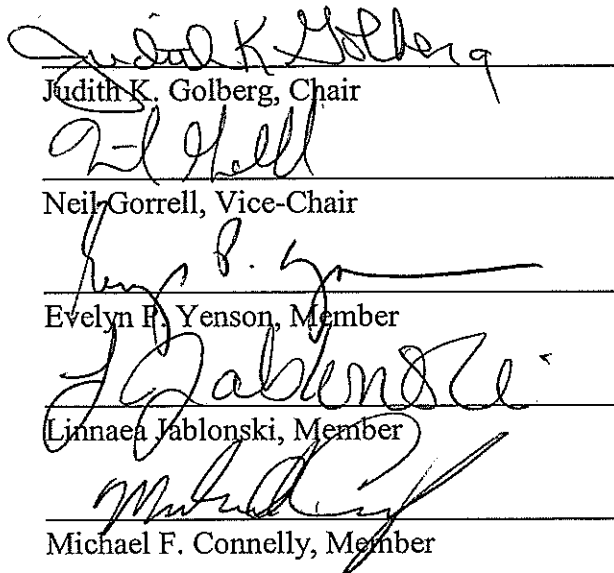 Judith K Golberg
Judith K. Golberg, Chair
Neil Gorrell, Vice-Chair
Evelyn P. Yenson, Member
L Jablonski
Linnaea Jablonski, Member
Michael F. Connelly, Member